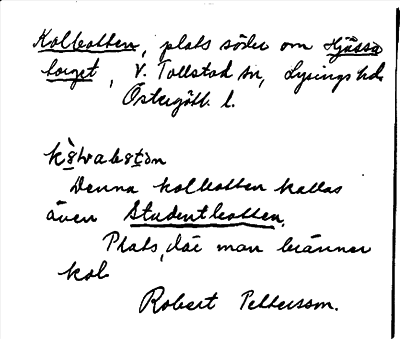 Kolbotten, plats söder om Hjässa
torget, V. Tollstad sn, Lysings hd.
Östergötl. l.
Denna kolbotten kallas
även Studentbotten.
Plats, där man bränner
kol.
Robert Pettersson.